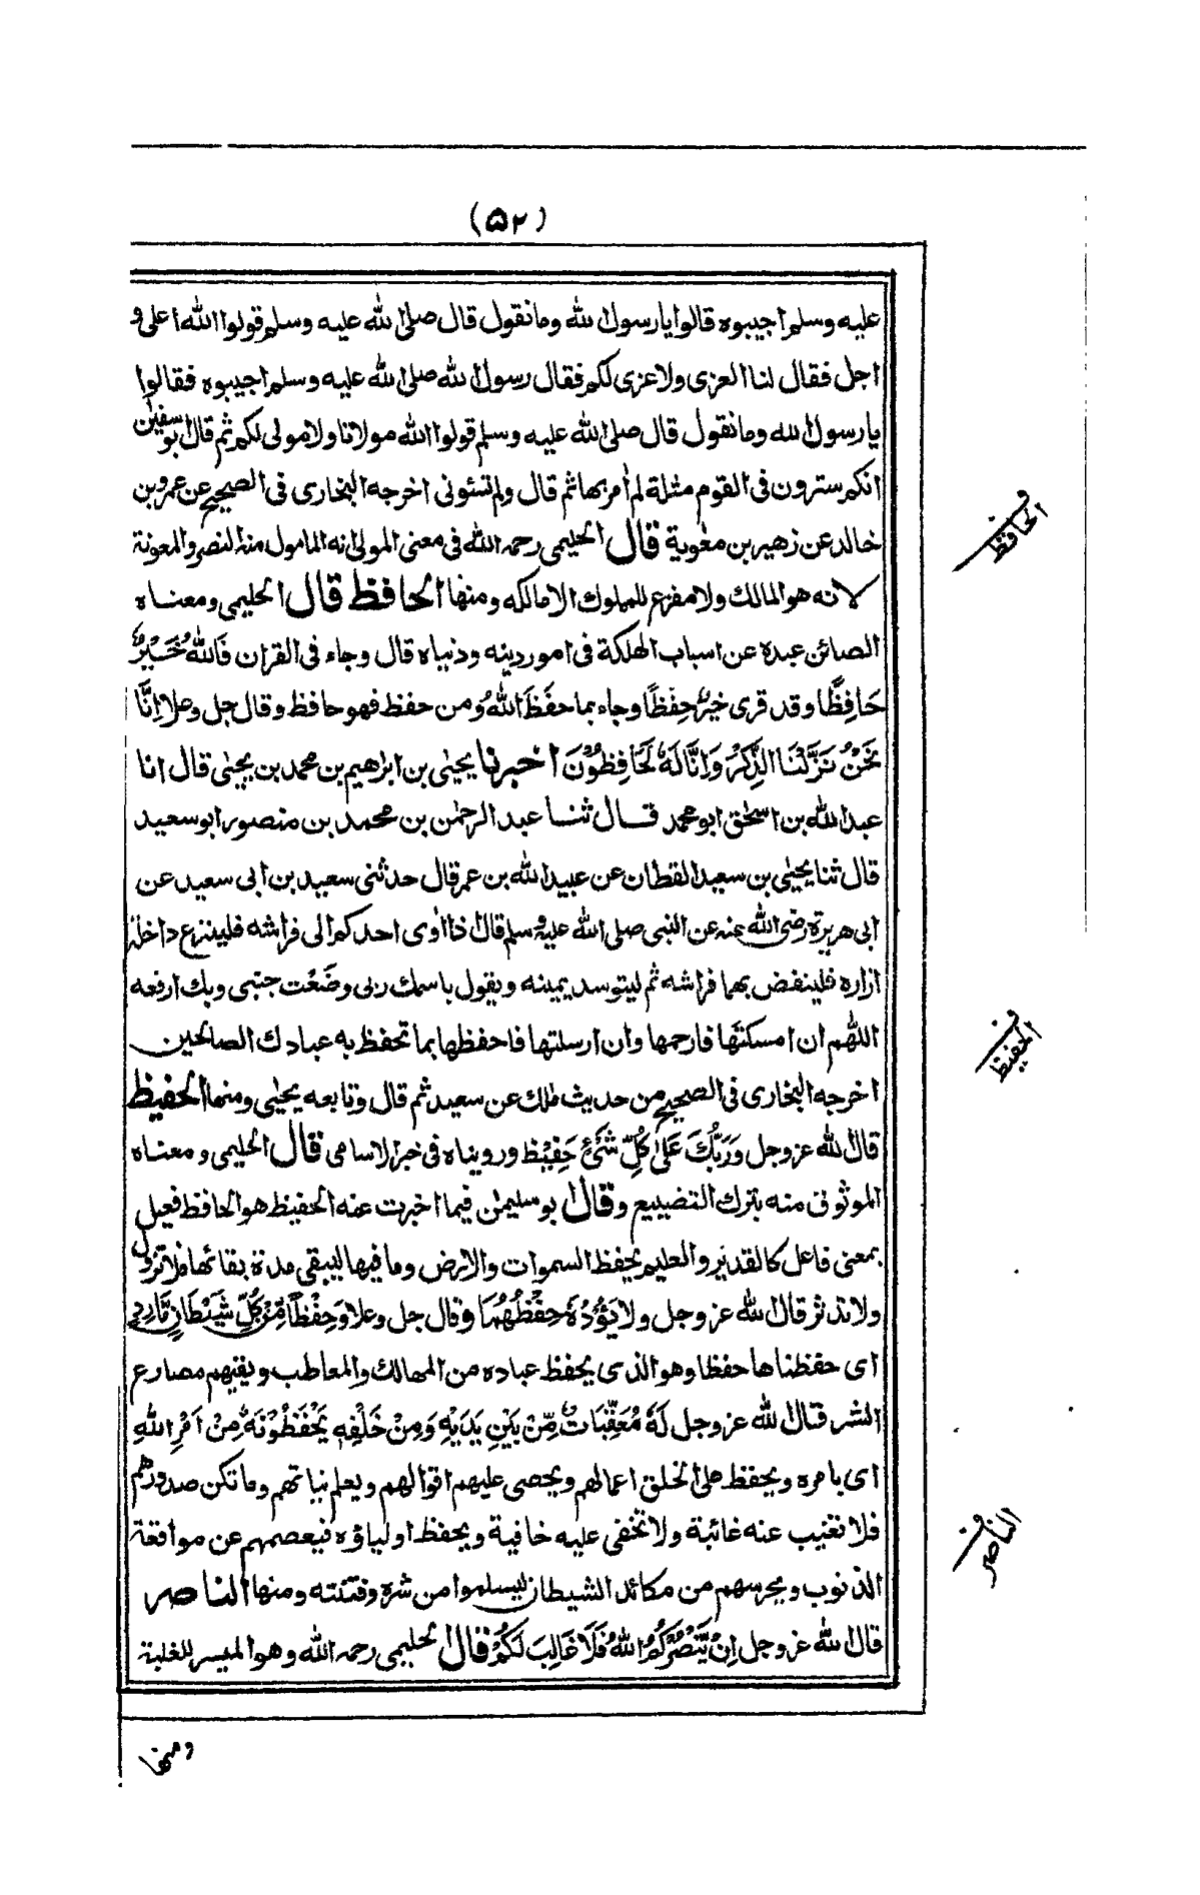 (۵۲)
عليه وسلم اجيبوه قالوا يا رسول الله وما نقول قال صلى الله عليه وسلم قولوا الله اعلى و
اجل فقال لنا العزى ولا عزى لكم فقال رسول الله صلى الله عليه وسلم اجيبوه فقالوا
يا رسول الله وما نقول قال صلى الله عليه وسلم قولوا الله مولانا ولا مولى لكم ثم قال ابو سفين
انكم سترون فى القوم مثلة لم أمر بها ثم قال ولم تسئونى اخرجه البخارى فى الصحيح عن عمرو بن
خالد عن زهير بن معٰوية قال الحليمى رحمه الله فى معنى المولى انه المامول منه النصر والمعونة
لانه هو المالك ولا مفزع للمملوك الا مالكه ومنها الحافظ قال الحليمى ومعناه
الصائن عبده عن اسباب الهلكة فى امور دينه ودنياه قال وجاء فى القران فَاللّٰهُ خَيْرٌ
حَافِظًا وقد قرى خيرٌ حِفْظًا وجاء بما حفَظَ اللّٰهُ ومن حفظ فهو حافظ وقال جل وعلا اِنَّا
نَحْنُ نَزَّلْنَا الذِّكْرَ وَاِنَّا لَهٗ لَحَافِظُوْنَ اخبرنا يحيٰى بن ابرٰهيم بن محمد بن يحيٰى قال انا
عبد الله بن اسحٰق ابو محمد قال ثنا عبد الرحمٰن بن محمد بن منصور ابو سعيد
قال ثنا يحيٰى بن سعيد القطان عن عبيد الله بن عمر قال حدثنى سعيد بن ابى سعيد عن
ابى هريرة رضى الله عنه عن النبى صلى الله عليه وسلم قال اذا اٰوى احدكم الى فراشه فلينزع داخلة
ازاره فلينفض بها فراشه ثم ليتوسد يمينه ويقول باسمك ربى وضَعْت جنبى وبك ارفعه
اللّٰهم ان امسكتَها فارحمها وان ارسلتها فاحفظها بما تحفظ به عبادك الصالحين
اخرجه البخارى فى الصحيح من حديث مٰلك عن سعيد ثم قال وتابعه يحيٰى ومنها الحفيظ
قال الله عز وجل وَرَبُّكَ عَلٰى كُلِّ شَيْءٍ حَفِيْظ ورويناه فى خبر الاسامى قال الحليمى ومعناه
الموثوق منه بترك التضييع وقال ابو سليمٰن فيما اخبرت عنه الحفيظ هو الحافظ فعيل
بمعنى فاعل كالقدير والعليم يحفظ السموات والارض وما فيها ليبقى مدة بقائها فلا تزول
ولا تدثر قال الله عز وجل ولا يَؤُدُهٗ حِفْظُهُمَا وقال جل وعلا وَحِفْظًا مِّنْ كُلِّ شَيْطَانٍ مَّارِدٍ
اى حفظناها حفظا وهو الذى يحفظ عباده من المهالك والمعاطب ويقيهم مصارع
الشر قال الله عز وجل لَهٗ مُعَقِّبَاتٌ مِّنْ بَيْنِ يَدَيْهِ وَمِنْ خَلْفِهٖ يَحْفَظُوْنَهٗ مِنْ اَمْرِ اللّٰهِ
اى بامره ويحفظ على الخلق اعمالهم ويحصى عليهم اقوالهم ويعلم نياتهم وما تكن صدورهم
فلا تغيب عنه غائبة ولا تخفى عليه خافية ويحفظ اولياؤه فيعصمهم عن مواقعة
الذنوب ويحرسهم من مكائد الشيطان ليسلموا من شره وفتنته ومنها الناصر
قال الله عز وجل اِنْ يَّنْصُرْكُمُ اللّٰهُ فَلَا غَالِبَ لَكُمْ قال الحليمى رحمه الله وهو الميسر للغلبة
ومنها
الحافظ
الحفيظ
الناصر